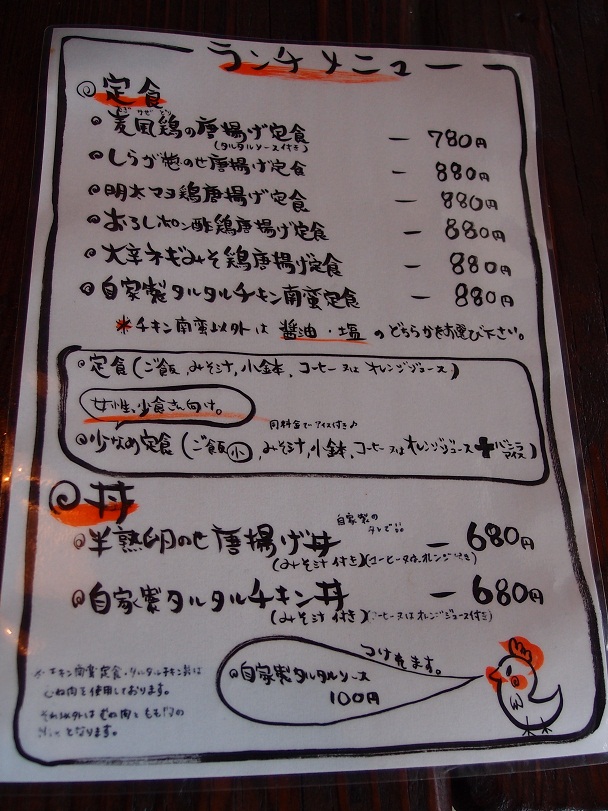 ランチメニュー
定食
麦風鶏の唐揚げ定食 — 780円
(タルタルソース付き)
しらが葱のせ唐揚げ定食 — 880円
明太マヨ鶏唐揚げ定食 — 880円
おろしポン酢鶏唐揚げ定食 — 880円
大辛ネギみそ鶏唐揚げ定食 — 880円
自家製タルタルチキン南蛮定食 — 880円
*チキン南蛮以外は 醤油・塩 のどちらかをお選び下さい。
定食(ご飯、みそ汁、小鉢、コーヒー又はオレンジジュース)
女性、少食さん向け。
同料金でアイス付き♪
少なめ定食(ご飯小、みそ汁、小鉢、コーヒー又はオレンジジュース+バニラアイス)
丼
自家製の
タレで
半熟卵のせ唐揚げ丼 — 680円
(みそ汁付き)(コーヒー又はオレンジ付き)
自家製タルタルチキン丼 — 680円
(みそ汁付き)(コーヒー又はオレンジジュース付き)
つけれます。
自家製タルタルソース
100円
チキン南蛮定食・タルタルチキン丼は
むね肉を使用しております。
それ以外はむね肉ともも肉の
となります。